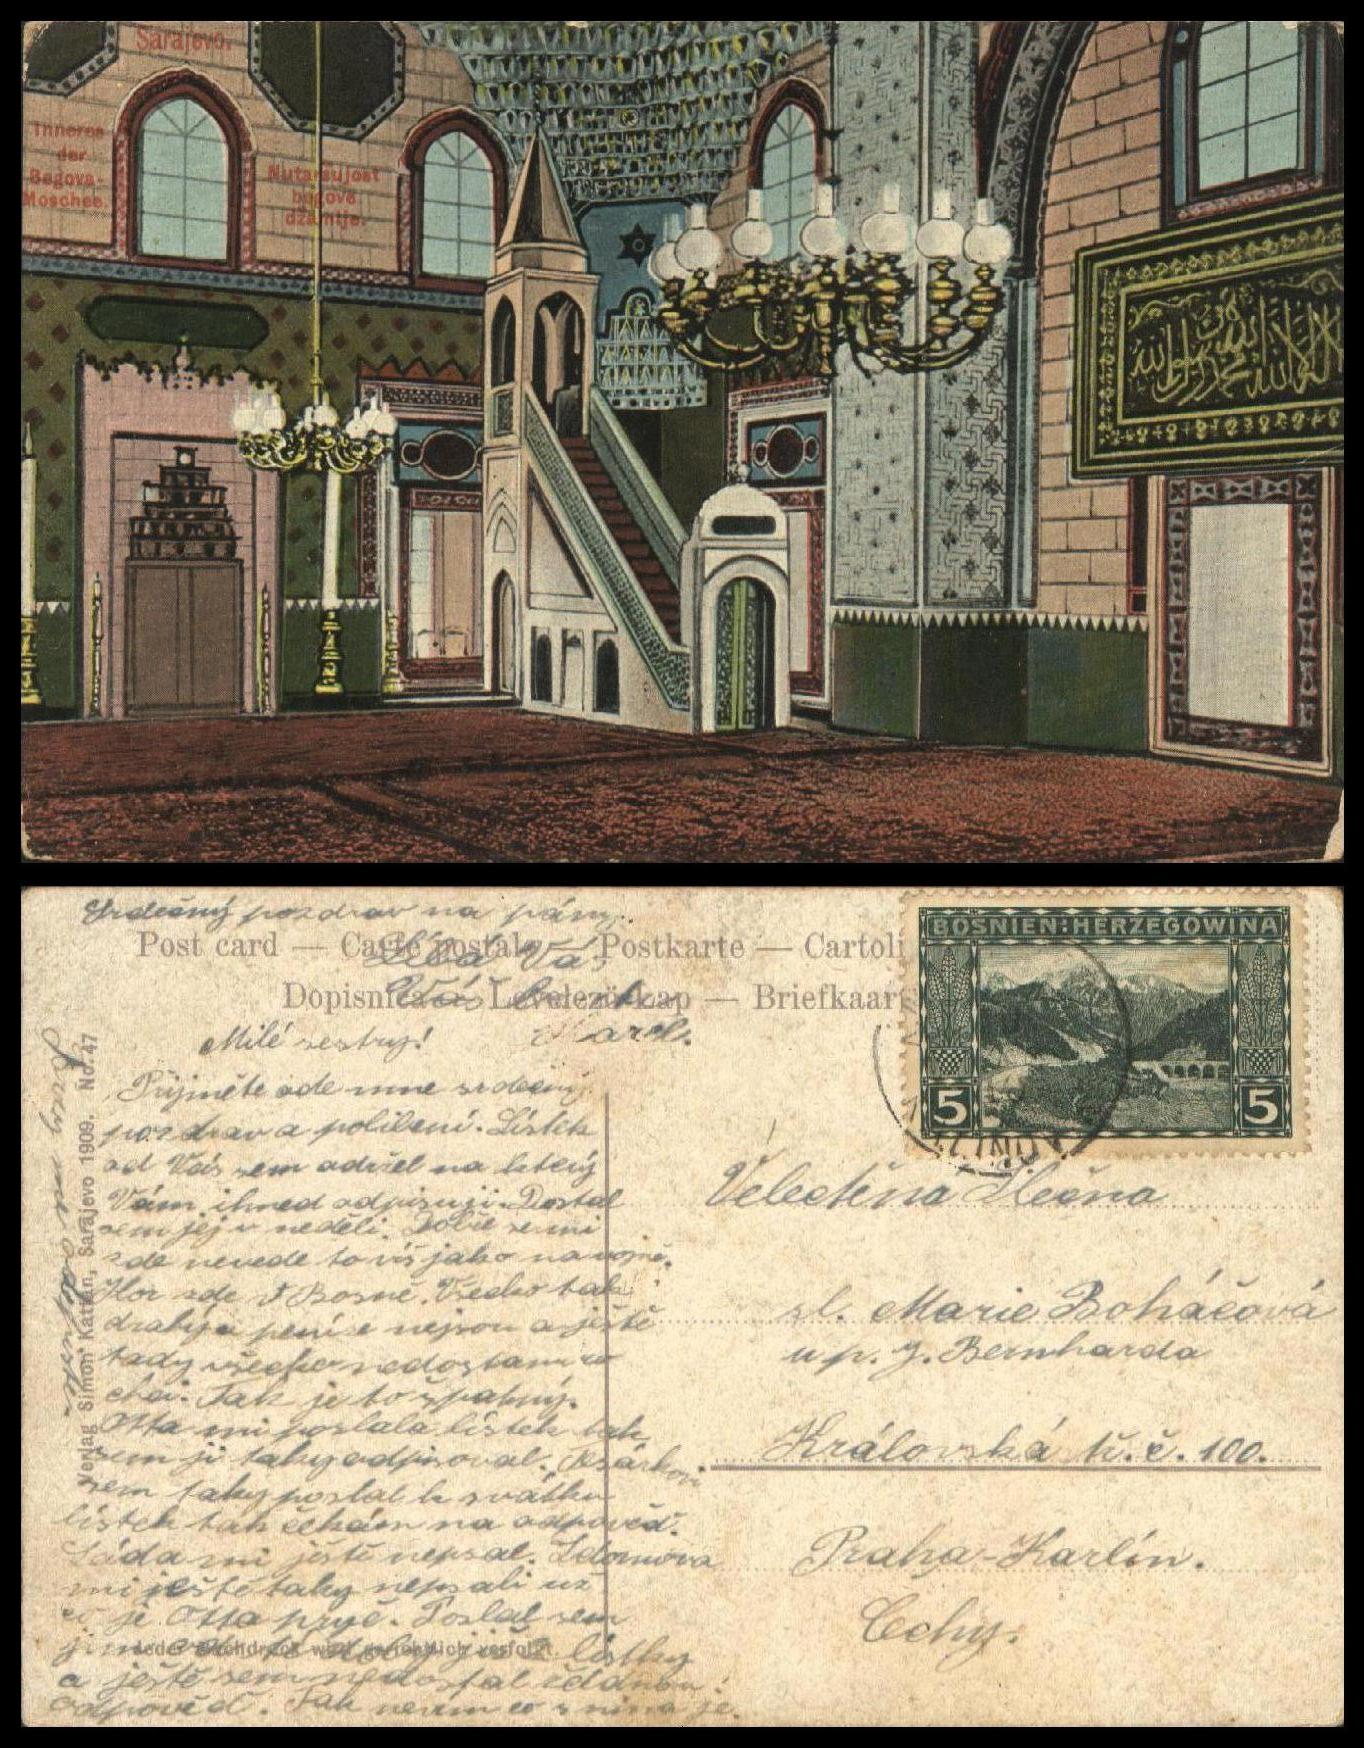 Sarajevo.
Inneres
der
Begova-
Moschee.
Nutarnjost
begove
džamije.
Srdečný pozdrav na pány.
Post card — Carte postale — Postkarte — Cartoli
Líbá Vás
Dopisnica — Levelező-Lap — Briefkaart
Váš bratr
Karel.
Milé sestry!
Přijměte ode mne srdečný
pozdrav a políbení. Lístek
od Vás sem obdržel na který
Vám ihned odpisuji. Dostal
sem jej v neděli. Dobře se mi
zde nevede to víš jako na vojně.
Hor zde v Bosně. Všecko tak
drahý a peníze nejsou a ještě
tady všecko nedostanu co
chci. Tak je to špatný.
Otta mi poslala lístek tak
sem ji taky odpisoval.
sem taky poslal k svátku
lístek tak čekám na odpověď.
Láďa mi ještě nepsal. Z domova
mi ještě taky nepsali už
co je Otta pryč. Poslal sem
lístky
a ještě sem nedostal žádnou
odpověď. Tak nevím co s nima je.
Verlag Simon Kattan, Sarajevo 1909. No. 47
Jeder Nachdruck wird gerichtlich verfolgt.
BOSNIEN-HERZEGOWINA
5 5
Velectěná Slečna
sl. Marie Boháčová
u p. J. Bernharda
Královská tř. č. 100.
Praha-Karlín.
Čechy.